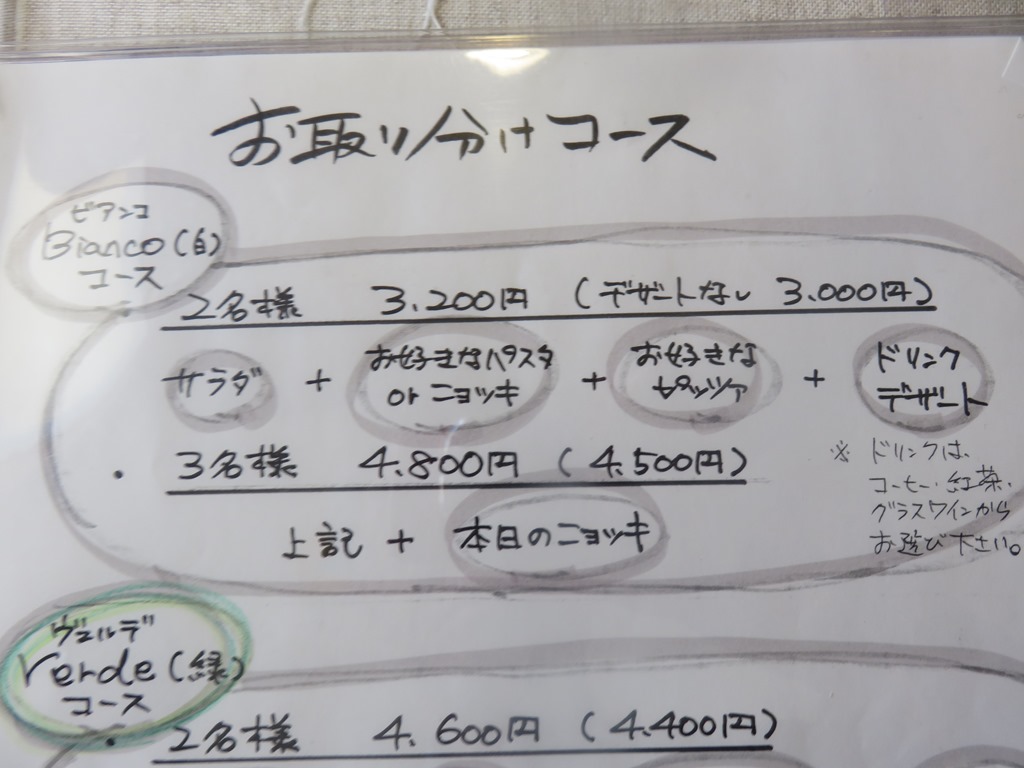 お取り分けコース
ビアンコ
Bianco(白)
コース
・2名様 3.200円 (デザートなし 3.000円)
サラダ + お好きなパスタ or ニョッキ + お好きな ピッツァ + ドリンク デザート
・3名様 4.800円 (4.500円)
上記 + 本日のニョッキ
※ ドリンクは、
コーヒー・紅茶・
グラスワインから
お選び下さい。
ヴェルデ
Verde(緑)
コース
・2名様 4.600円 (4.400円)